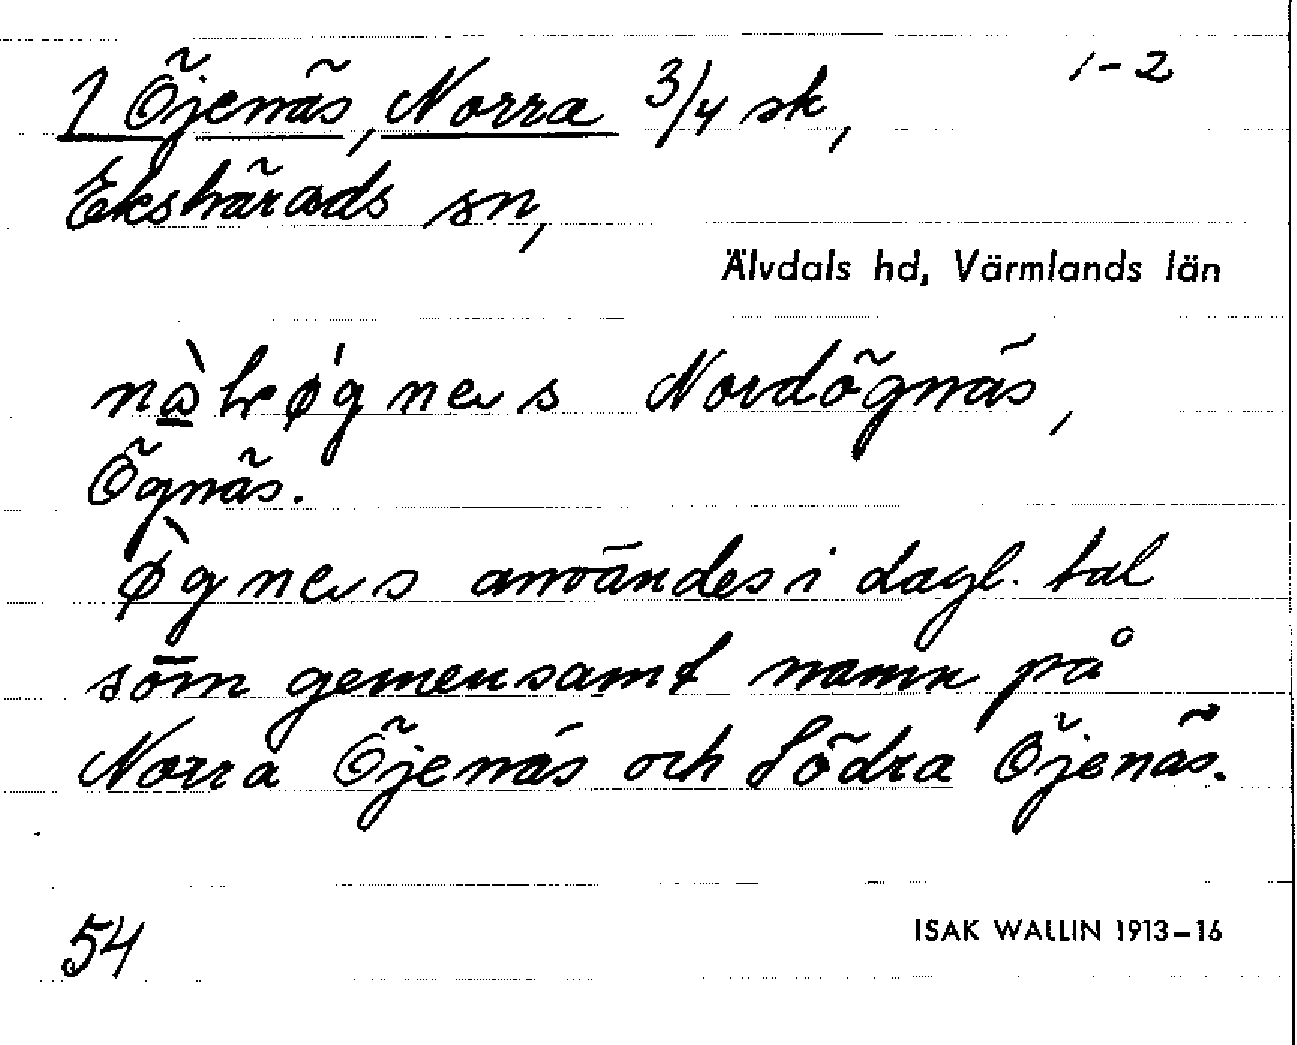 1 Öjenäs, Norra 3/4 sk, 1-2
Ekshärads sn,
Älvdals hd, Värmlands län
Nordögnäs,
Ögnäs.
användes i dagl. tal
som gemensamt namn på
Norra Öjenäs och Södra Öjenäs.
54 ISAK WALLIN 1913–16